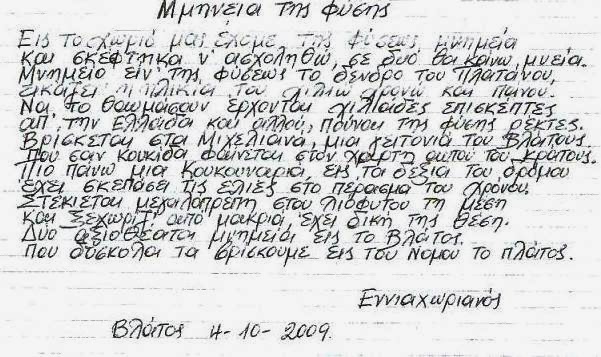 Μμηνεία της φύσης
Εις το χωριό μας έχομε της φύσεως μνημεία
και σκέφτηκα ν' ασχοληθώ, σε δυό θα κάνω μνεία.
Μνημείο είν' της φύσεως το δένδρο του Πλατάνου,
εικάζει η ηλικία του χιλίω χρονώ και πάνου.
Να το θαυμάσουν έρχονται χιλιάδες επισκέπτες
απ' την Ελλάδα και αλλού, πούναι της φύσης ρέκτες.
Βρίσκεται στα Μιχελιανά, μια γειτονιά του Βλάτους.
Που σαν κουκίδα φαίνεται στον χάρτη αυτού του κράτους.
Πιο πάνω μια Κουκουναριά, εις τα δεξιά του δρόμου
έχει σκεπάσει τις ελιές στο πέρασμα του χρόνου.
Στέκεται μεγαλοπρεπή στου λιόφυτου τη μέση
και ξεχωρίζ' από μακριά, έχει δική της θέση.
Δύο αξιοθέατα μνημεία εις το Βλάτος.
που δύσκολα τα βρίσκουμε εις του Νομού το πλάτος.
Εννιαχωριανός
Βλάτος 4-10-2009.